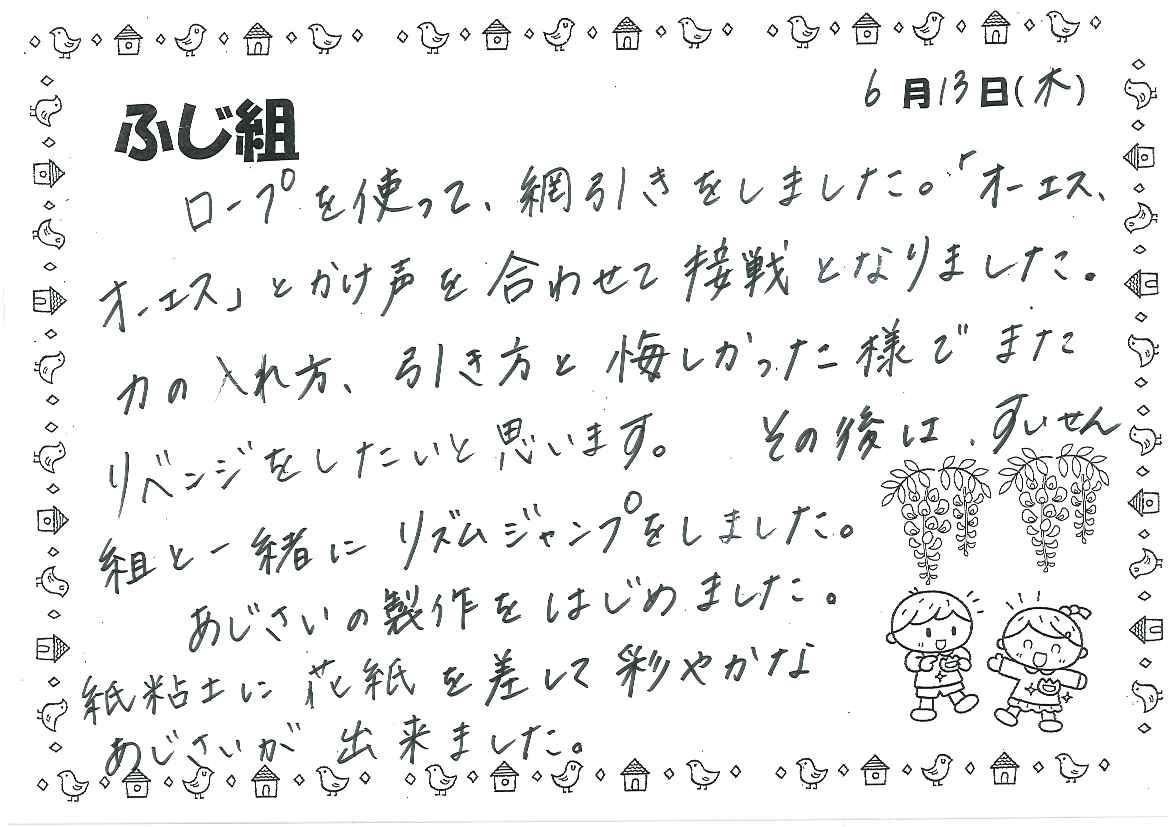 6月13日(木)
ふじ組
ロープを使って、網引きをしました。「オーエス、
オーエス」とかけ声を合わせて接戦となりました。
力の入れ方、引き方と悔しかった様でまた
リベンジをしたいと思います。 その後は、すいせん
組と一緒にリズムジャンプをしました。
あじさいの製作をはじめました。
紙粘土に花紙を差して彩やかな
あじさいが出来ました。